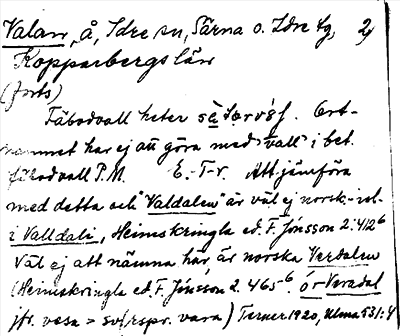 Valan, å, Idre sn, Särna o. Idre tg, 2)
Kopparbergs län
(forts)
Fäbodvall heter Ort-
namnet har ej att göra med "vall" i bet.
fäbodvall P.M. E.-T-r. Att jämföra
med detta och "Valdalen" är väl ej norsk-isl.
i Valldali, Heimskringla ed. F. Jónsson 2:412⁶
Väl ej att nämna här, är norska Verdalen
(Heimskringla ed. F. Jónsson 2. 465⁻⁶. ór Veradal
jfr. vesa > sv/espr. vara) Terner 1920, Ulma 531:4